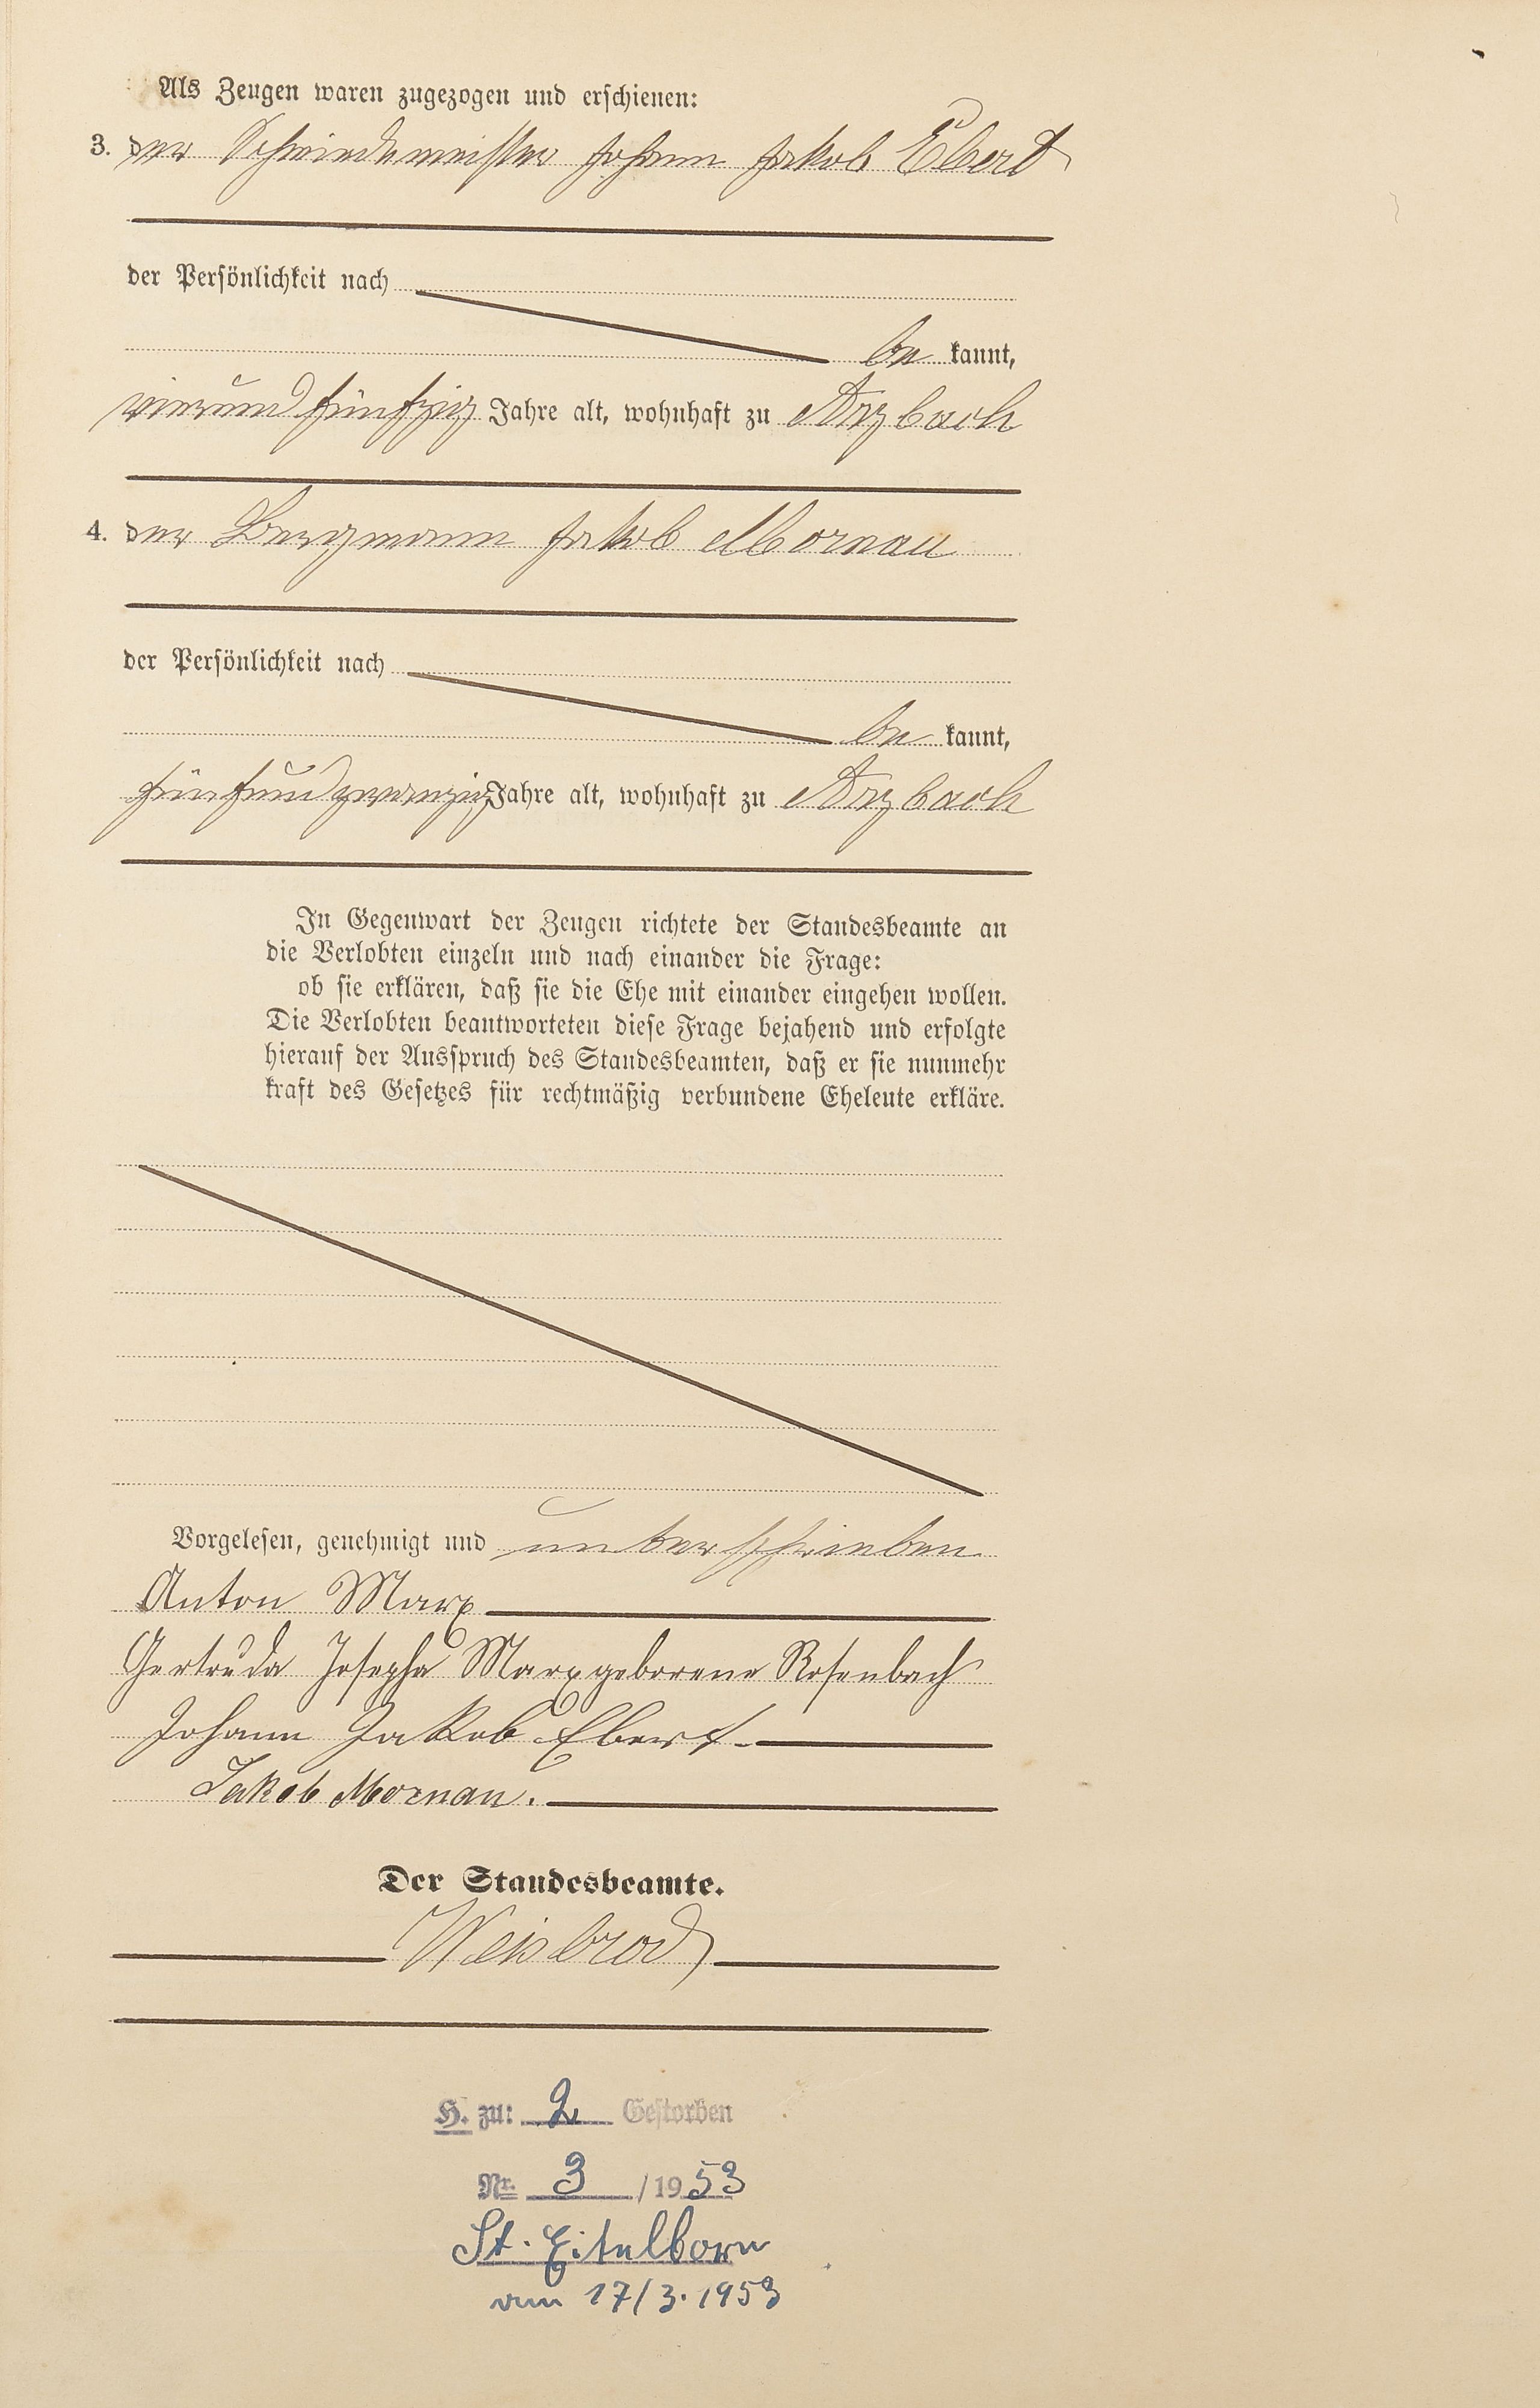 Als Zeugen waren zugezogen und erschienen:
3. der Schmiedemeister Johann Jakob Ebert
der Persönlichkeit nach
be kannt,
vierundfünfzig Jahre alt, wohnhaft zu Arzbach
4. der Bergmann Jakob Mornau
der Persönlichkeit nach
be kannt,
fünfundzwanzig Jahre alt, wohnhaft zu Arzbach
In Gegenwart der Zeugen richtete der Standesbeamte an
die Verlobten einzeln und nach einander die Frage:
ob sie erklären, daß sie die Ehe mit einander eingehen wollen.
Die Verlobten beantworteten diese Frage bejahend und erfolgte
hierauf der Ausspruch des Standesbeamten, daß er sie nunmehr
kraft des Gesetzes für rechtmäßig verbundene Eheleute erkläre.
Vorgelesen, genehmigt und unterschrieben
Anton Marx
Gertruda Josepha Marx geborene Rosenbach
Johann Jakob Ebert
Jakob Mornau.
Der Standesbeamte.
Weisbrod
H. zu: 2 Gestorben
Nr. 3 / 1953
St. Eitelborn
vom 17/3. 1953